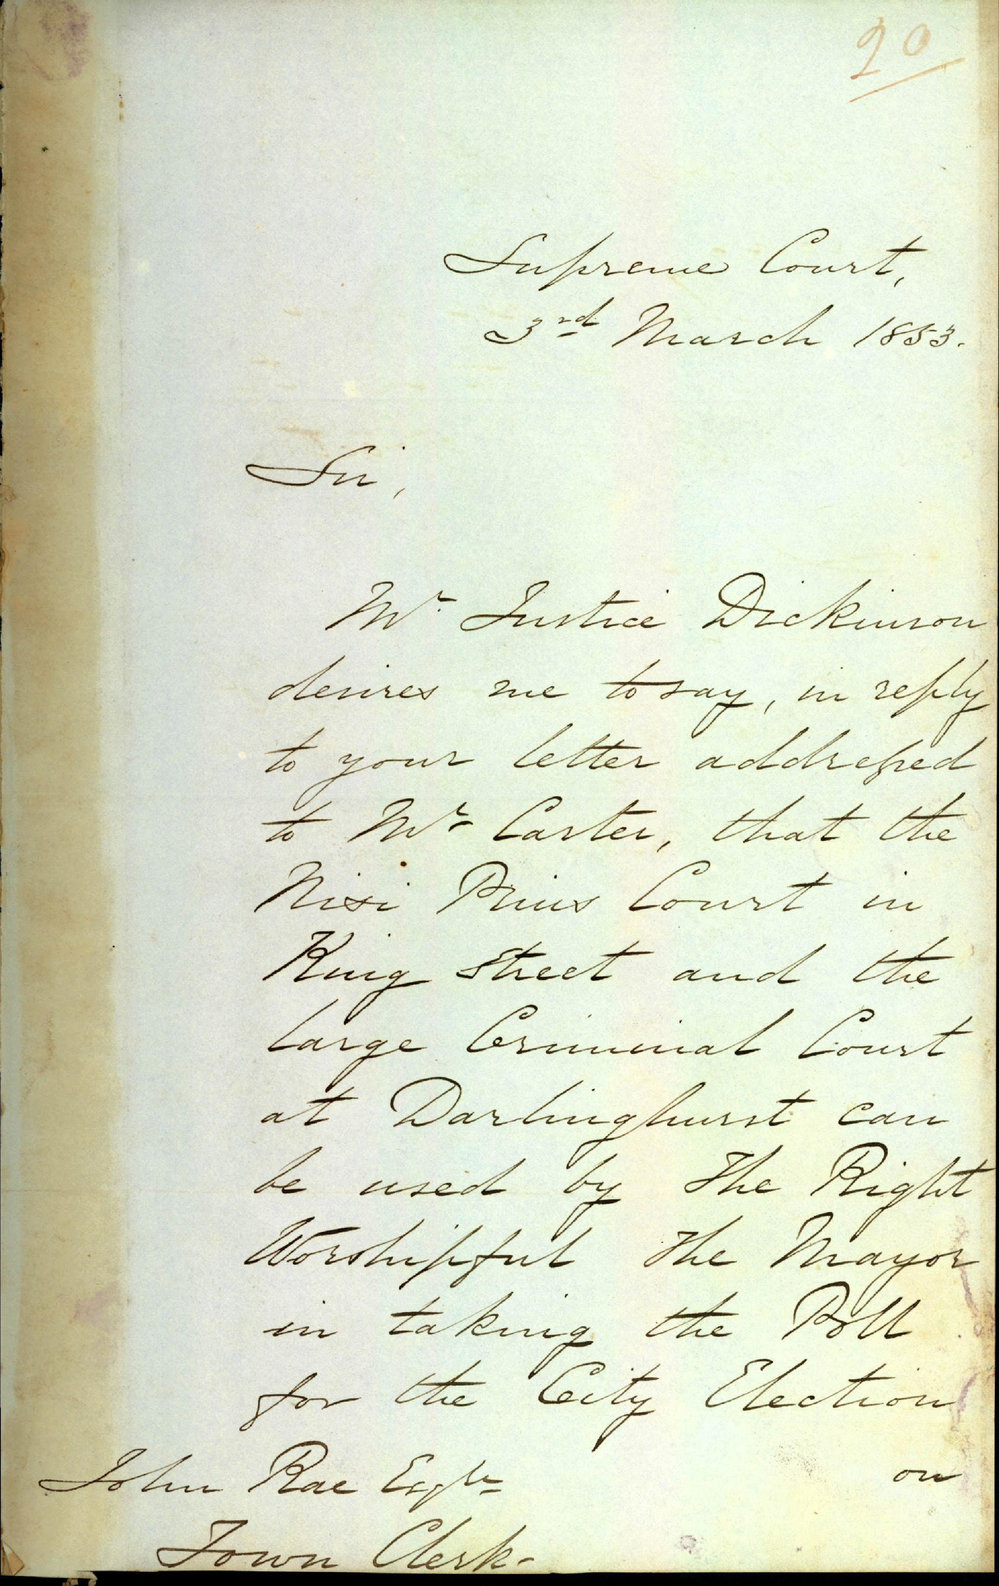 20
Supreme Court,
3rd March 1853.
Sir,
Mr. Justice Dickinson
desires me to say, in reply
to your letter addressed
to Mr Carter, that the
Nisi Prius Court in
King Street and the
large Criminal Court
at Darlinghurst can
be used by The Right
Worshipful The Mayor
in taking the Poll
for the City Election
on
John Rae Esqre
Town Clerk-